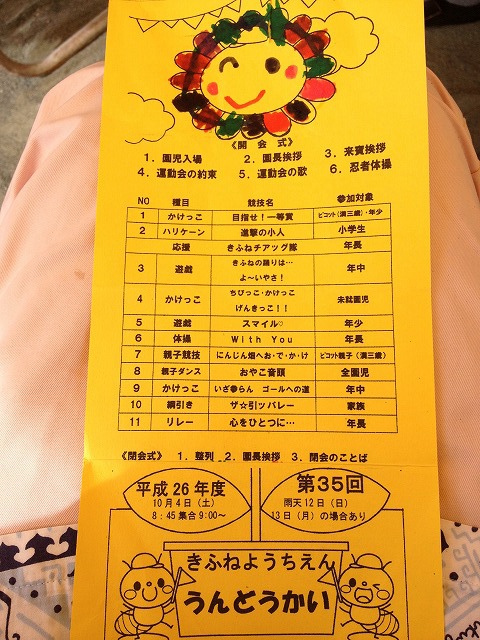 《開会式》
1. 園児入場 2. 園長挨拶 3. 来賓挨拶
4. 運動会の約束 5. 運動会の歌 6. 忍者体操
NO 種目 競技名 参加対象
1 かけっこ 目指せ！一等賞 ピコット(満三歳)・年少
2 ハリケーン 進撃の小人 小学生
応援 きふねチアッグ隊 年長
3 遊戯 きふねの踊りは… よ～いやさ！ 年中
4 かけっこ ちびっこ・かけっこ げんきっこ！！ 未就園児
5 遊戯 スマイル♡ 年少
6 体操 With You 年長
7 親子競技 にんじん畑へお・で・か・け ピコット親子(満三歳)
8 親子ダンス おやこ音頭 全園児
9 かけっこ いざ参らん ゴールへの道 年中
10 綱引き ザ☆引ッパレー 家族
11 リレー 心をひとつに… 年長
《閉会式》 1. 整列 2. 園長挨拶 3. 閉会のことば
平成26年度 第35回
10月4日(土) 雨天12日(日)
8:45集合9:00～ 13日(月)の場合あり
きふねようちえん
うんどうかい